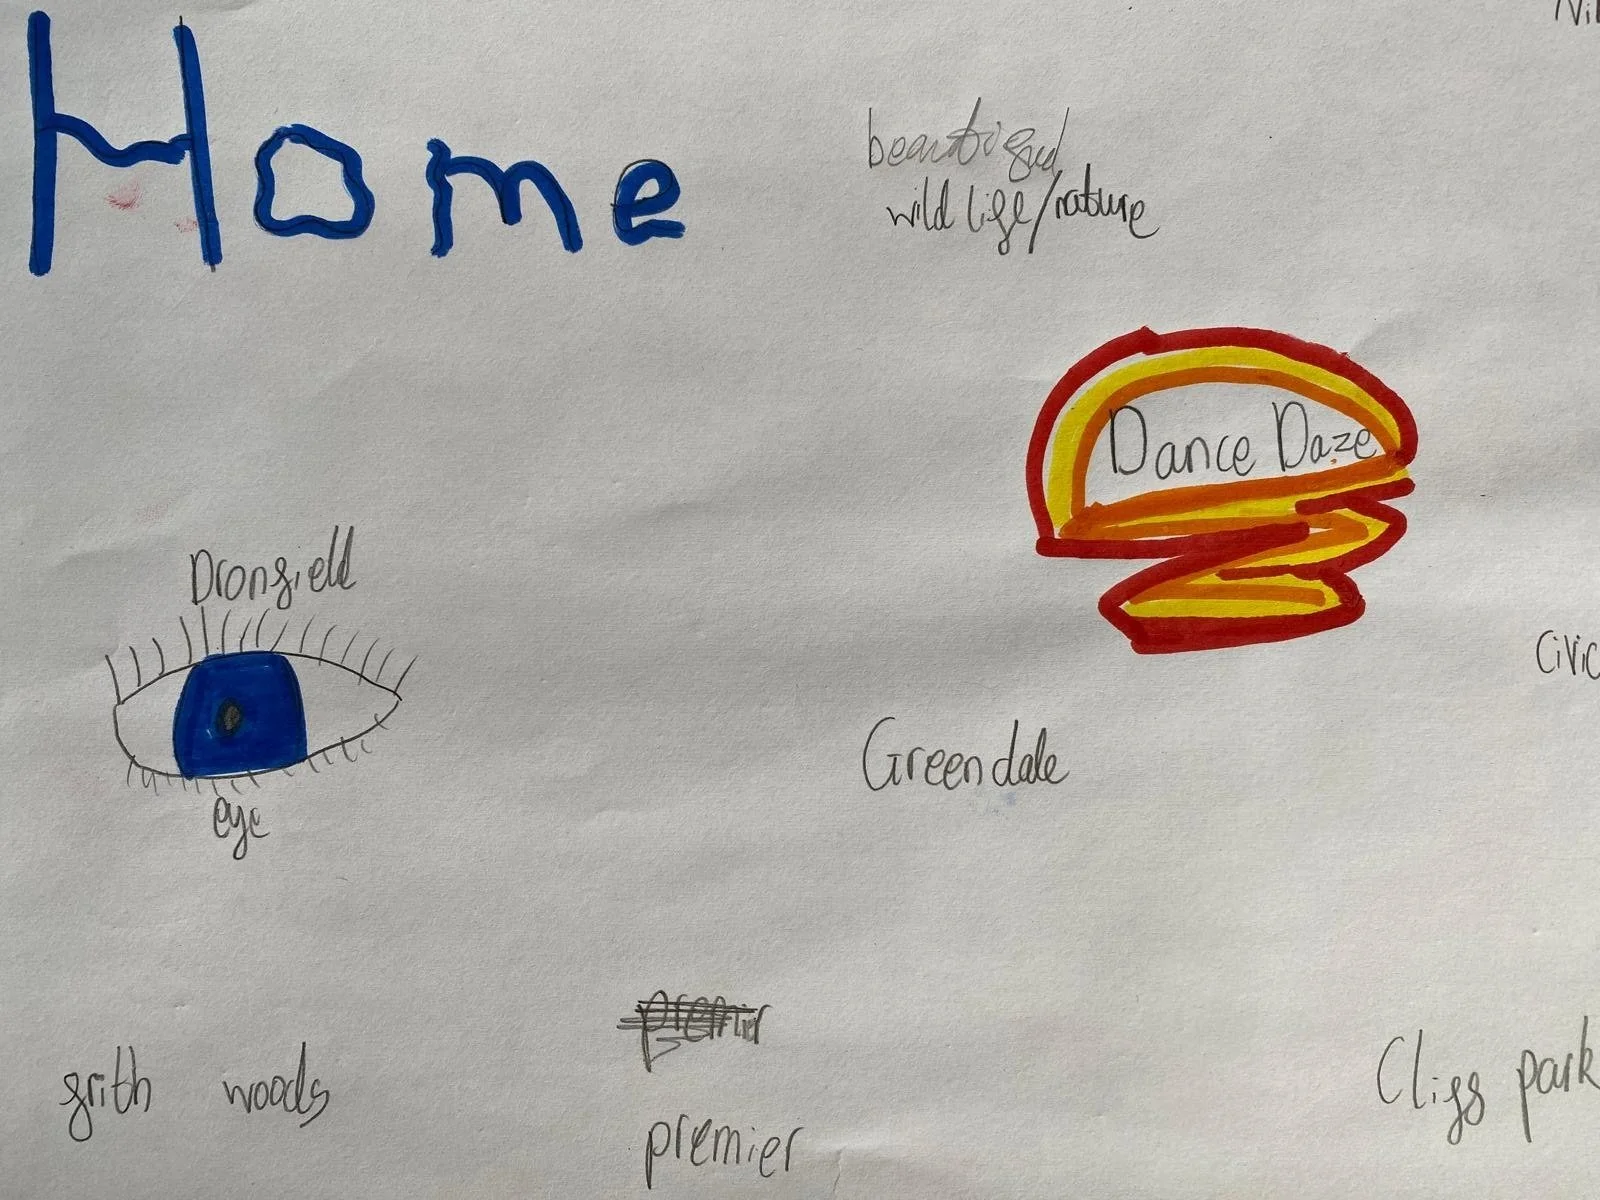 Home
beautiful
wild life/nature
Dance Daze
Dronfield
eye
Greendale
Civic
frith woods
premier
premier
Cliff park